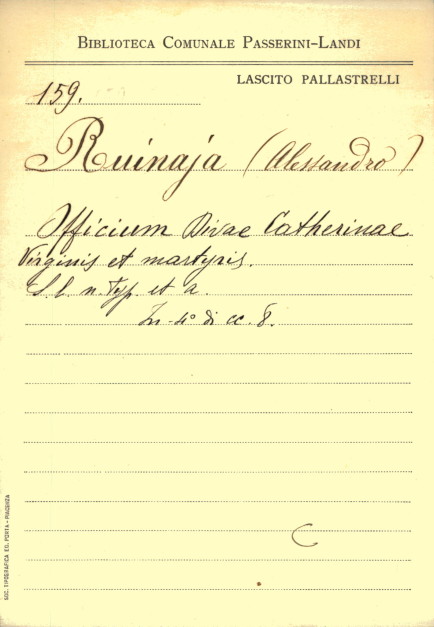 BIBLIOTECA COMUNALE PASSERINI-LANDI
LASCITO PALLASTRELLI
159.
Ruinaja (Alessandro)
Officium Divae Catherinae
Virginis et martyris.
S. l. n. typ. et a.
In-4° di cc. 8.
C
SOC. TIPOGRAFICA ED. PORTA - PIACENZA